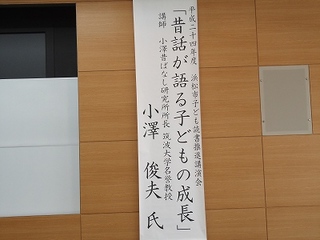 平成二十四年度 浜松市子ども読書推進講演会
「昔話が語る子どもの成長」
講師 小澤昔ばなし研究所所長 筑波大学名誉教授
小澤 俊夫 氏